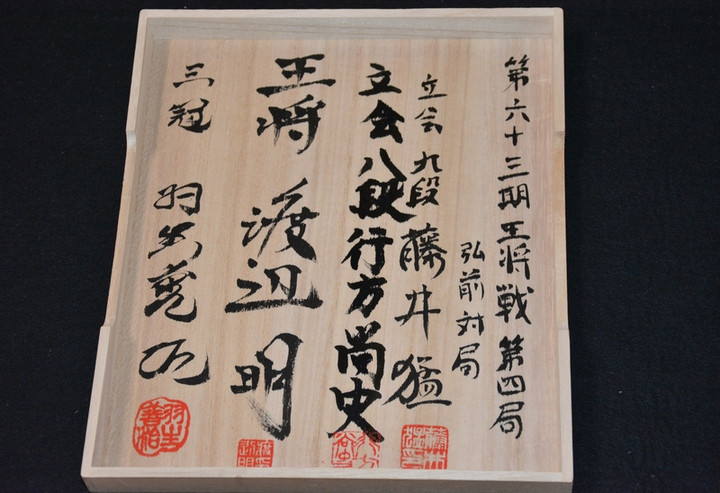 第六十三期王将戦 第四局
弘前対局
立会 九段 藤井猛
立会 八段 行方尚史
王将 渡辺 明
三冠 羽生善治
羽生善治